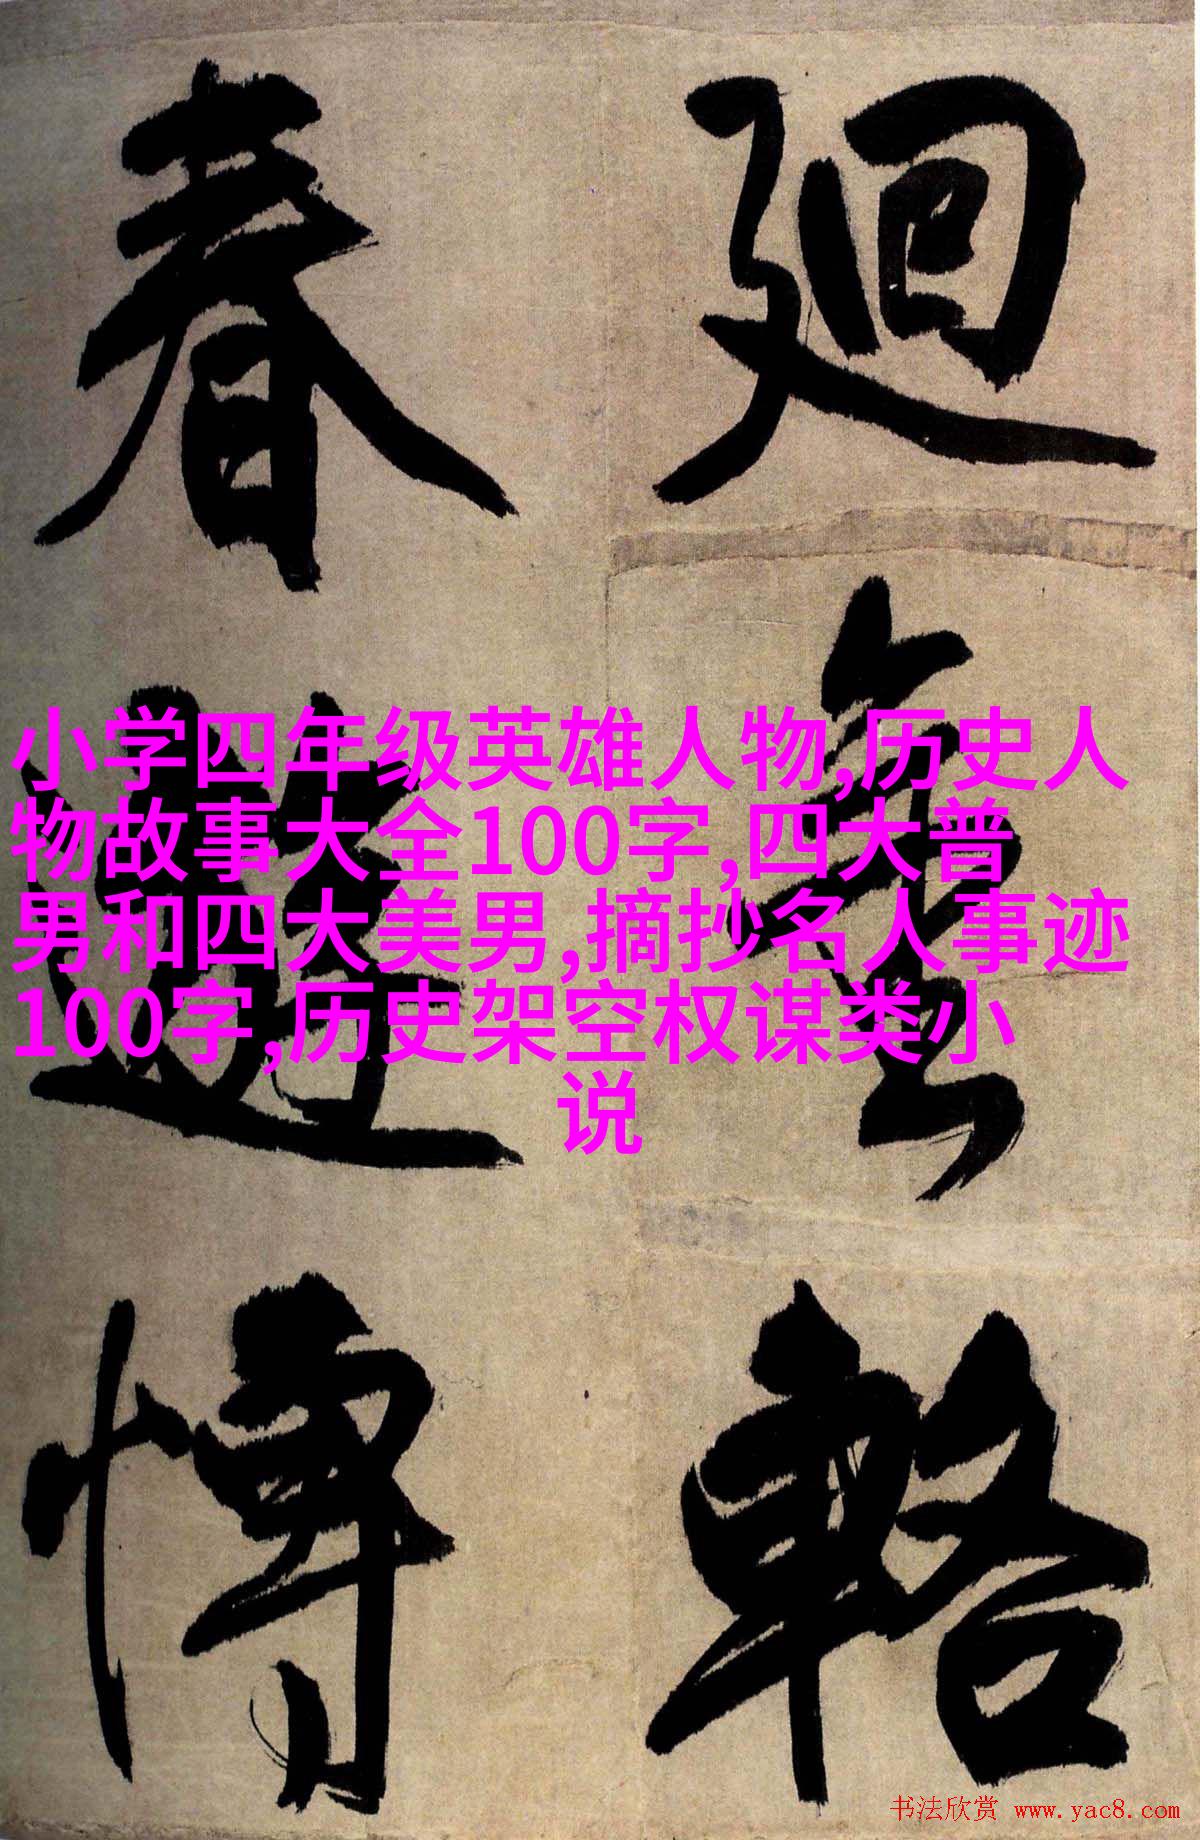 廻
輅
春
遊
博
小学四年级英雄人物,历史人
物故事大全100字,四大普
男和四大美男,摘抄名人事迹
100字,历史架空权谋类小
说
书法欣赏 www.yac8.com